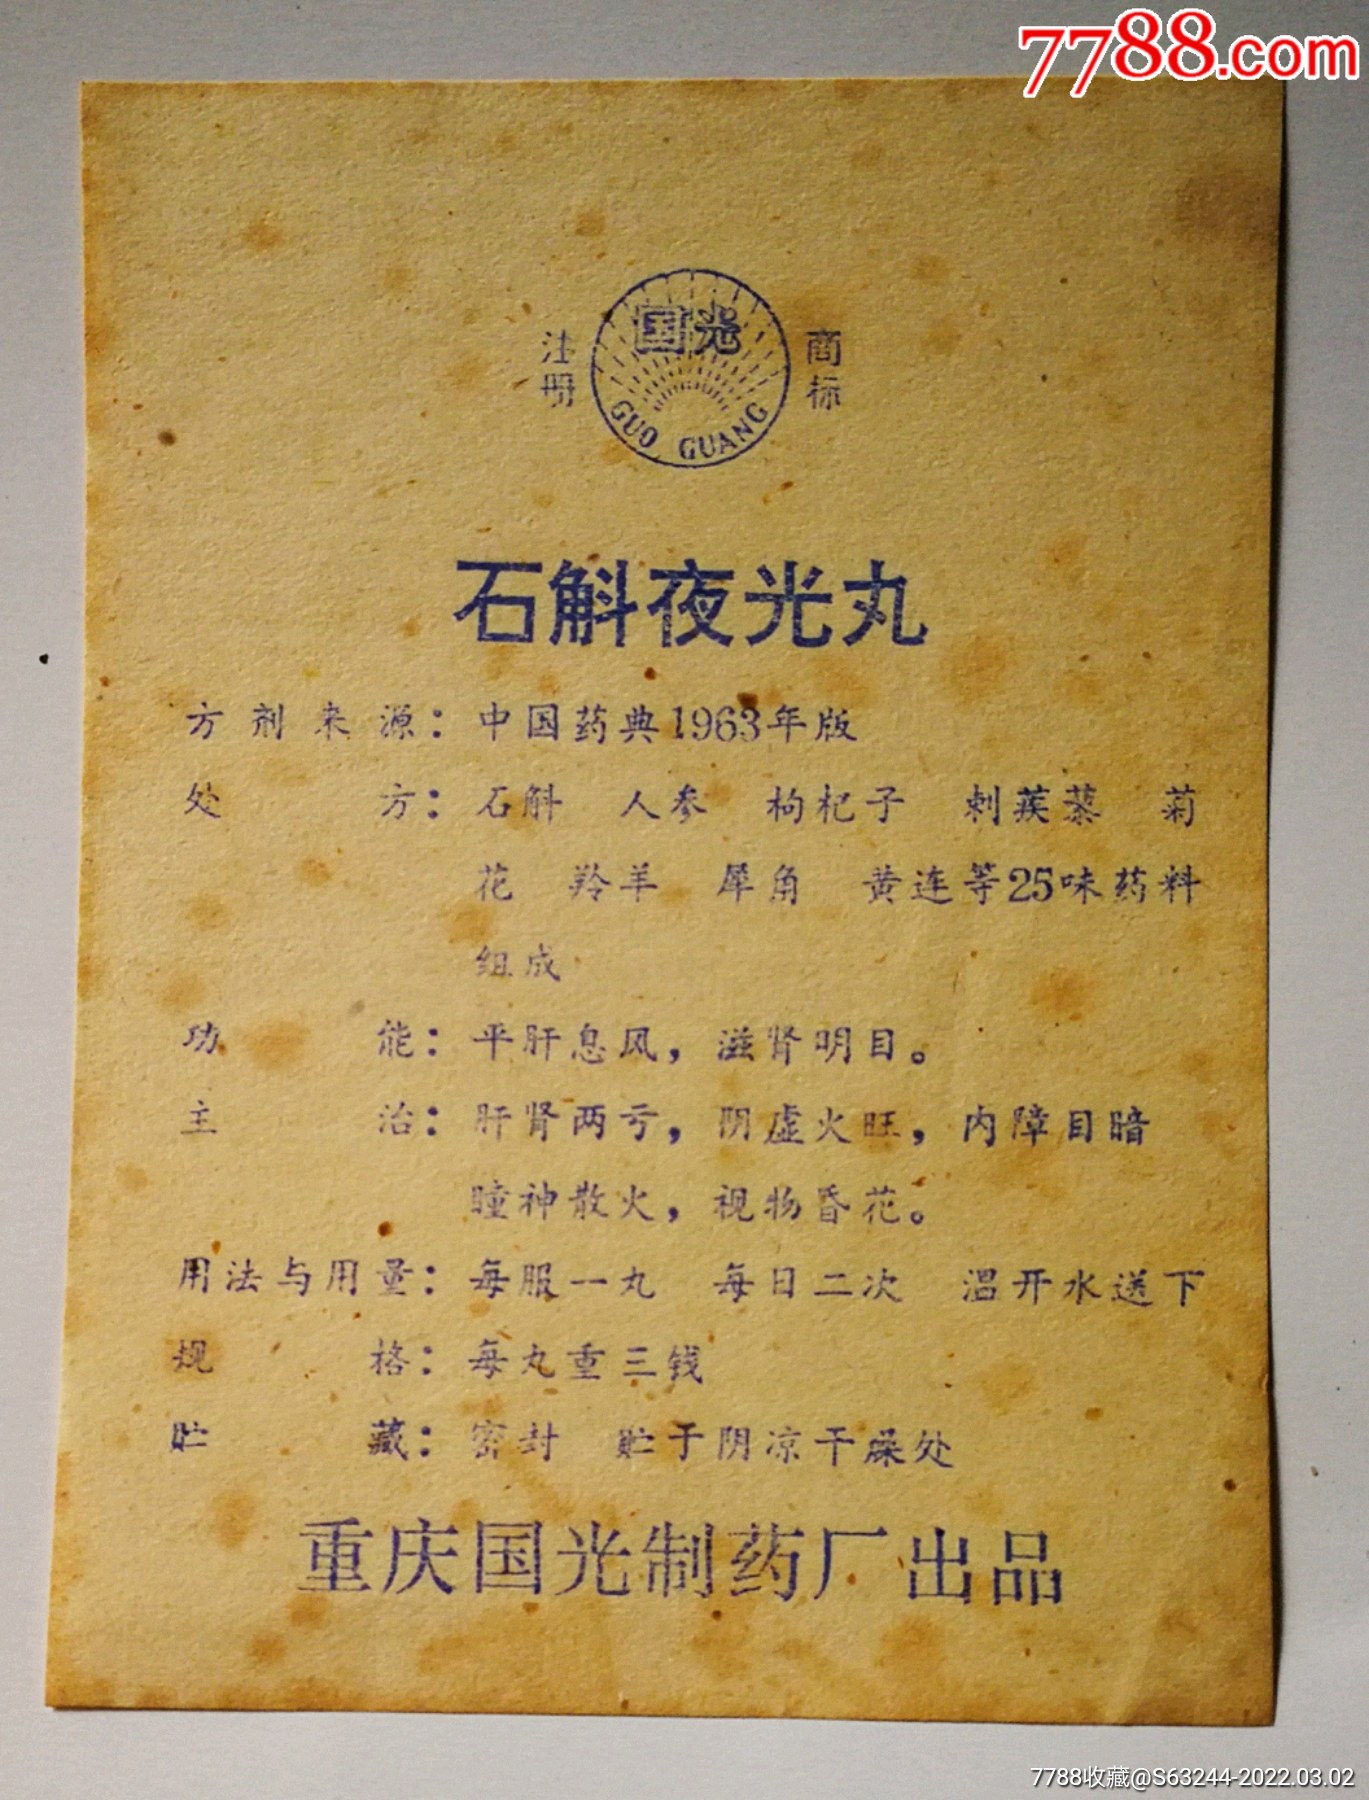 7788.com
注册
国光
GUO GUANG
商标
石斛夜光丸
方剂来源：中国药典1963年版
处方：石斛 人参 枸杞子 刺蒺藜 菊
花 羚羊 犀角 黄连等25味药料
组成
功能：平肝息风，滋肾明目。
主治：肝肾两亏，阴虚火旺，内障目暗
瞳神散火，视物昏花。
用法与用量：每服一丸 每日二次 温开水送下
规格：每丸重三钱
贮藏：密封 贮于阴凉干燥处
重庆国光制药厂出品
7788收藏@S63244-2022.03.02